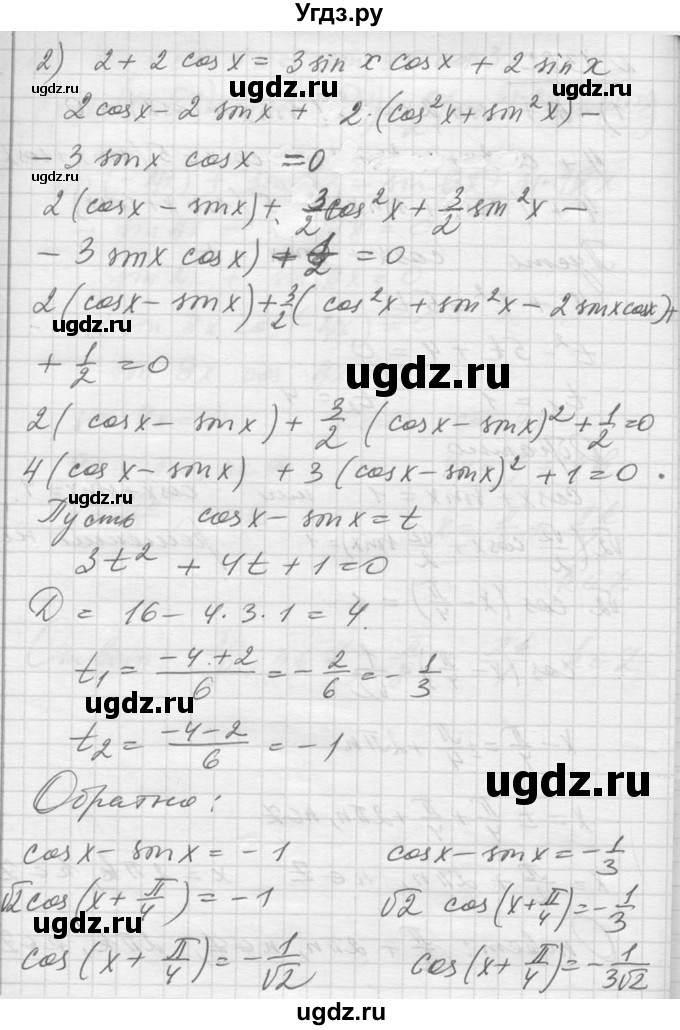 Угдз.ру
2) 2 + 2 cos x = 3 sin x cos x + 2 sin x
ugdz.ru ugdz.ru
2 cos x - 2 sin x + 2·(cos²x + sin²x) -
- 3 sin x cos x = 0
ugdz.ru
2(cos x - sin x) + 3/2 cos²x + 3/2 sin²x -
- 3 sin x cos x) + 1/2 = 0
ugdz.ru
2(cos x - sin x) + 3/2 (cos²x + sin²x - 2 sin x cos x) +
ugdz.ru
+ 1/2 = 0
ugdz.ru
2(cos x - sin x) + 3/2 (cos x - sin x)² + 1/2 = 0
4(cos x - sin x) + 3(cos x - sin x)² + 1 = 0.
Пусть cos x - sin x = t
ugdz.ru
3t² + 4t + 1 = 0
D = 16 - 4·3·1 = 4.
ugdz.ru
t₁ = (-4+2)/6 = -2/6 = -1/3
ugdz.ru
t₂ = (-4-2)/6 = -1
ugdz.ru
Обратно:
cos x - sin x = -1 cos x - sin x = -1/3
√2 cos(x + π/4) = -1 √2 cos(x + π/4) = -1/3
ugdz.ru
cos(x + π/4) = -1/√2 cos(x + π/4) = -1/3√2
ugdz.ru
ugdz.ru